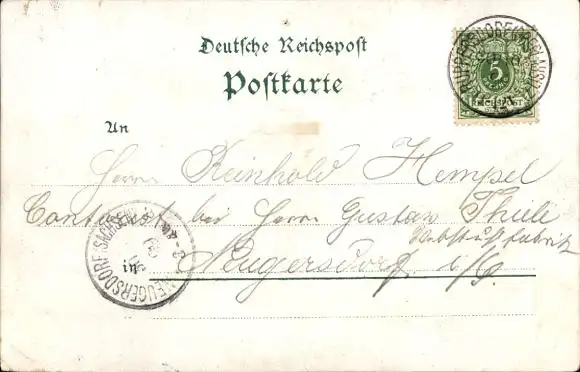 Deutsche Reichspost
Postkarte
5
REICHSPOST
An
Herrn Reinhold Hempel
Contorist bei Herrn Gustav Thiele
Webstuhlfabrik
in Neugersdorf i/S.
NEUGERSDORF (SACHSEN)